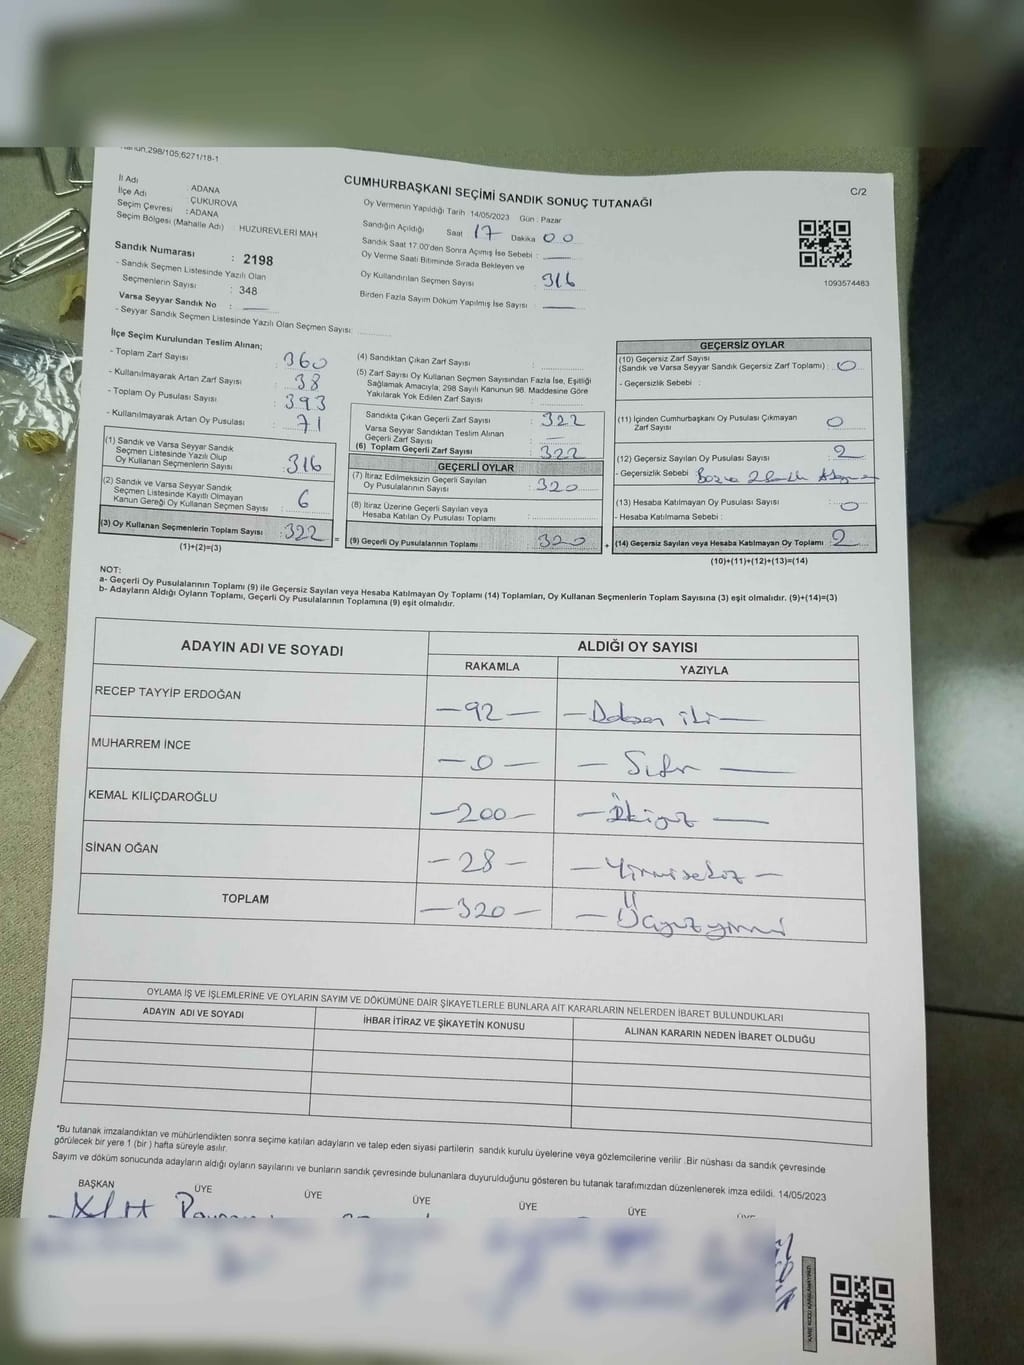 Kanun,298/105;6271/18-1
C/2
CUMHURBAŞKANI SEÇİMİ SANDIK SONUÇ TUTANAĞI
İl Adı : ADANA
İlçe Adı : ÇUKUROVA
Seçim Çevresi : ADANA
Seçim Bölgesi (Mahalle Adı) : HUZUREVLERİ MAH
Sandık Numarası : 2198
- Sandık Seçmen Listesinde Yazılı Olan
Seçmenlerin Sayısı : 348
Varsa Seyyar Sandık No :
- Seyyar Sandık Seçmen Listesinde Yazılı Olan Seçmen Sayısı:
Oy Vermenin Yapıldığı Tarih 14/05/2023 Gün : Pazar
Sandığın Açıldığı Saat 17 Dakika 00
Sandık Saat 17.00'den Sonra Açımış İse Sebebi :
Oy Verme Saati Bitiminde Sırada Bekleyen ve
Oy Kullandırılan Seçmen Sayısı 316
Birden Fazla Sayım Döküm Yapılmış İse Sayısı :
1093574463
İlçe Seçim Kurulundan Teslim Alınan;
- Toplam Zarf Sayısı : 360
- Kullanılmayarak Artan Zarf Sayısı : 38
- Toplam Oy Pusulası Sayısı : 393
- Kullanılmayarak Artan Oy Pusulası : 71
(1) Sandık ve Varsa Seyyar Sandık
Seçmen Listesinde Yazılı Olup
Oy Kullanan Seçmenlerin Sayısı : 316
(2) Sandık ve Varsa Seyyar Sandık
Seçmen Listesinde Kayıtlı Olmayan
Kanun Gereği Oy Kullanan Seçmen Sayısı : 6
(3) Oy Kullanan Seçmenlerin Toplam Sayısı : 322
(1)+(2)=(3)
=
(4) Sandıktan Çıkan Zarf Sayısı :
(5) Zarf Sayısı Oy Kullanan Seçmen Sayısından Fazla İse, Eşitliği
Sağlamak Amacıyla; 298 Sayılı Kanunun 98. Maddesine Göre
Yakılarak Yok Edilen Zarf Sayısı :
Sandıkta Çıkan Geçerli Zarf Sayısı : 322
Varsa Seyyar Sandıktan Teslim Alınan
Geçerli Zarf Sayısı :
(6) Toplam Geçerli Zarf Sayısı : 322
GEÇERLİ OYLAR
(7) İtiraz Edilmeksizin Geçerli Sayılan
Oy Pusulalarının Sayısı : 320
(8) İtiraz Üzerine Geçerli Sayılan veya
Hesaba Katılan Oy Pusulası Toplamı :
(9) Geçerli Oy Pusulalarının Toplamı : 320
+
GEÇERSİZ OYLAR
(10) Geçersiz Zarf Sayısı
(Sandık ve Varsa Seyyar Sandık Geçersiz Zarf Toplamı) : 0
- Geçersizlik Sebebi :
(11) İçinden Cumhurbaşkanı Oy Pusulası Çıkmayan
Zarf Sayısı 0
(12) Geçersiz Sayılan Oy Pusulası Sayısı : 2
- Geçersizlik Sebebi
(13) Hesaba Katılmayan Oy Pusulası Sayısı : 0
- Hesaba Katılmama Sebebi :
(14) Geçersiz Sayılan veya Hesaba Katılmayan Oy Toplamı : 2
(10)+(11)+(12)+(13)=(14)
NOT:
a- Geçerli Oy Pusulalarının Toplamı (9) ile Geçersiz Sayılan veya Hesaba Katılmayan Oy Toplamı (14) Toplamları, Oy Kullanan Seçmenlerin Toplam Sayısına (3) eşit olmalıdır. (9)+(14)=(3)
b- Adayların Aldığı Oyların Toplamı, Geçerli Oy Pusulalarının Toplamına (9) eşit olmalıdır.
ADAYIN ADI VE SOYADI ALDIĞI OY SAYISI
RAKAMLA YAZIYLA
RECEP TAYYİP ERDOĞAN —92— —Doksan iki—
MUHARREM İNCE —0— —Sıfır—
KEMAL KILIÇDAROĞLU —200— —İkiyüz—
SİNAN OĞAN —28— —Yirmisekiz—
TOPLAM —320— —Üçyüzyirmi
OYLAMA İŞ VE İŞLEMLERİNE VE OYLARIN SAYIM VE DÖKÜMÜNE DAİR ŞİKAYETLERLE BUNLARA AİT KARARLARIN NELERDEN İBARET BULUNDUKLARI
ADAYIN ADI VE SOYADI İHBAR İTİRAZ VE ŞİKAYETİN KONUSU ALINAN KARARIN NEDEN İBARET OLDUĞU
*Bu tutanak imzalandıktan ve mühürlendikten sonra seçime katılan adayların ve talep eden siyasi partilerin sandık kurulu üyelerine veya gözlemcilerine verilir. Bir nüshası da sandık çevresinde
görülecek bir yere 1 (bir) hafta süreyle asılır.
Sayım ve döküm sonucunda adayların aldığı oyların sayılarını ve bunların sandık çevresinde bulunanlara duyurulduğunu gösteren bu tutanak tarafımızdan düzenlenerek imza edildi. 14/05/2023
BAŞKAN ÜYE ÜYE ÜYE ÜYE ÜYE ÜYE